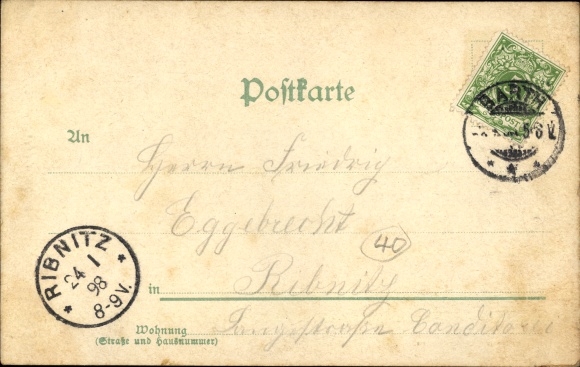 Postkarte
BARTH
5-6 V.
An
Herrn Friedrich
Eggebrecht
40
RIBNITZ
24 1
98
8-9V.
in Ribnitz
Wohnung
(Straße und Hausnummer)
Langestraße Conditorei